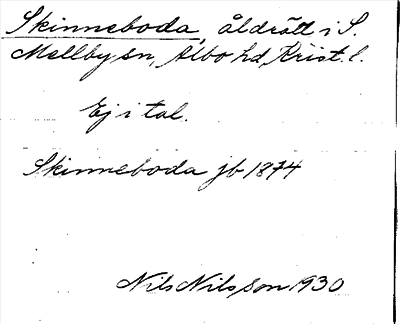 Skinneboda, åldrått i S.
Mellby sn, Albo hd, Krist. l.
Ej i tal.
Skinneboda jb 1874
Nils Nilsson 1930